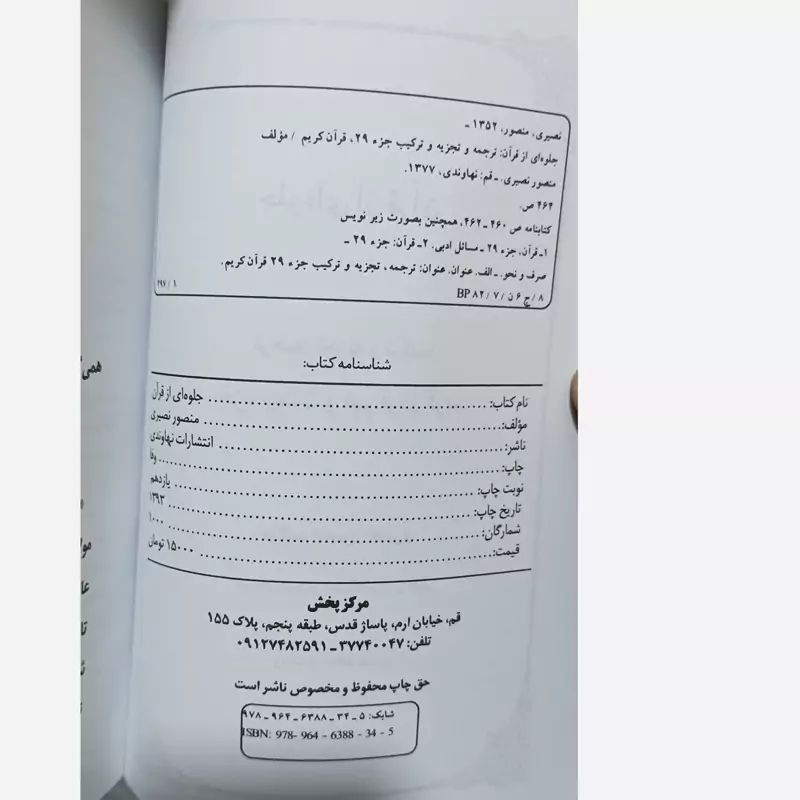 نصیری، منصور، ۱۳۵۲ ـ
جلوه‌ای از قرآن: ترجمه و تجزیه و ترکیب جزء ۲۹، قرآن کریم / مؤلف
منصور نصیری. ـ قم: نهاوندی، ۱۳۷۷.
۴۶۴ ص.
کتابنامه ص ۴۶۰ ـ ۴۶۲، همچنین بصورت زیر نویس
۱ـ قرآن، جزء ۲۹ ـ مسائل ادبی. ۲ـ قرآن: جزء ۲۹ ـ
صرف و نحو. ـ الف. عنوان. عنوان: ترجمه، تجزیه و ترکیب جزء ۲۹ قرآن کریم.
۸ / ج ۶ ن / ۷ / ۸۲ BP ۲۹۷/۱
شناسنامه کتاب:
نام کتاب: جلوه‌ای از قرآن
مؤلف: منصور نصیری
ناشر: انتشارات نهاوندی
چاپ: وفا
نوبت چاپ: یازدهم
تاریخ چاپ: ۱۳۹۳
شمارگان: ۱۰۰۰
قیمت: ۱۵۰۰۰ تومان
مرکز پخش
قم، خیابان ارم، پاساژ قدس، طبقه پنجم، پلاک ۱۵۵
تلفن: ۳۷۷۴۰۰۴۷ـ۰۹۱۲۷۴۸۲۵۹۱
حق چاپ محفوظ و مخصوص ناشر است
شابک: ۵ ـ ۳۴ ـ ۶۳۸۸ ـ ۹۶۴ ـ ۹۷۸
ISBN: 978- 964 - 6388 - 34 - 5